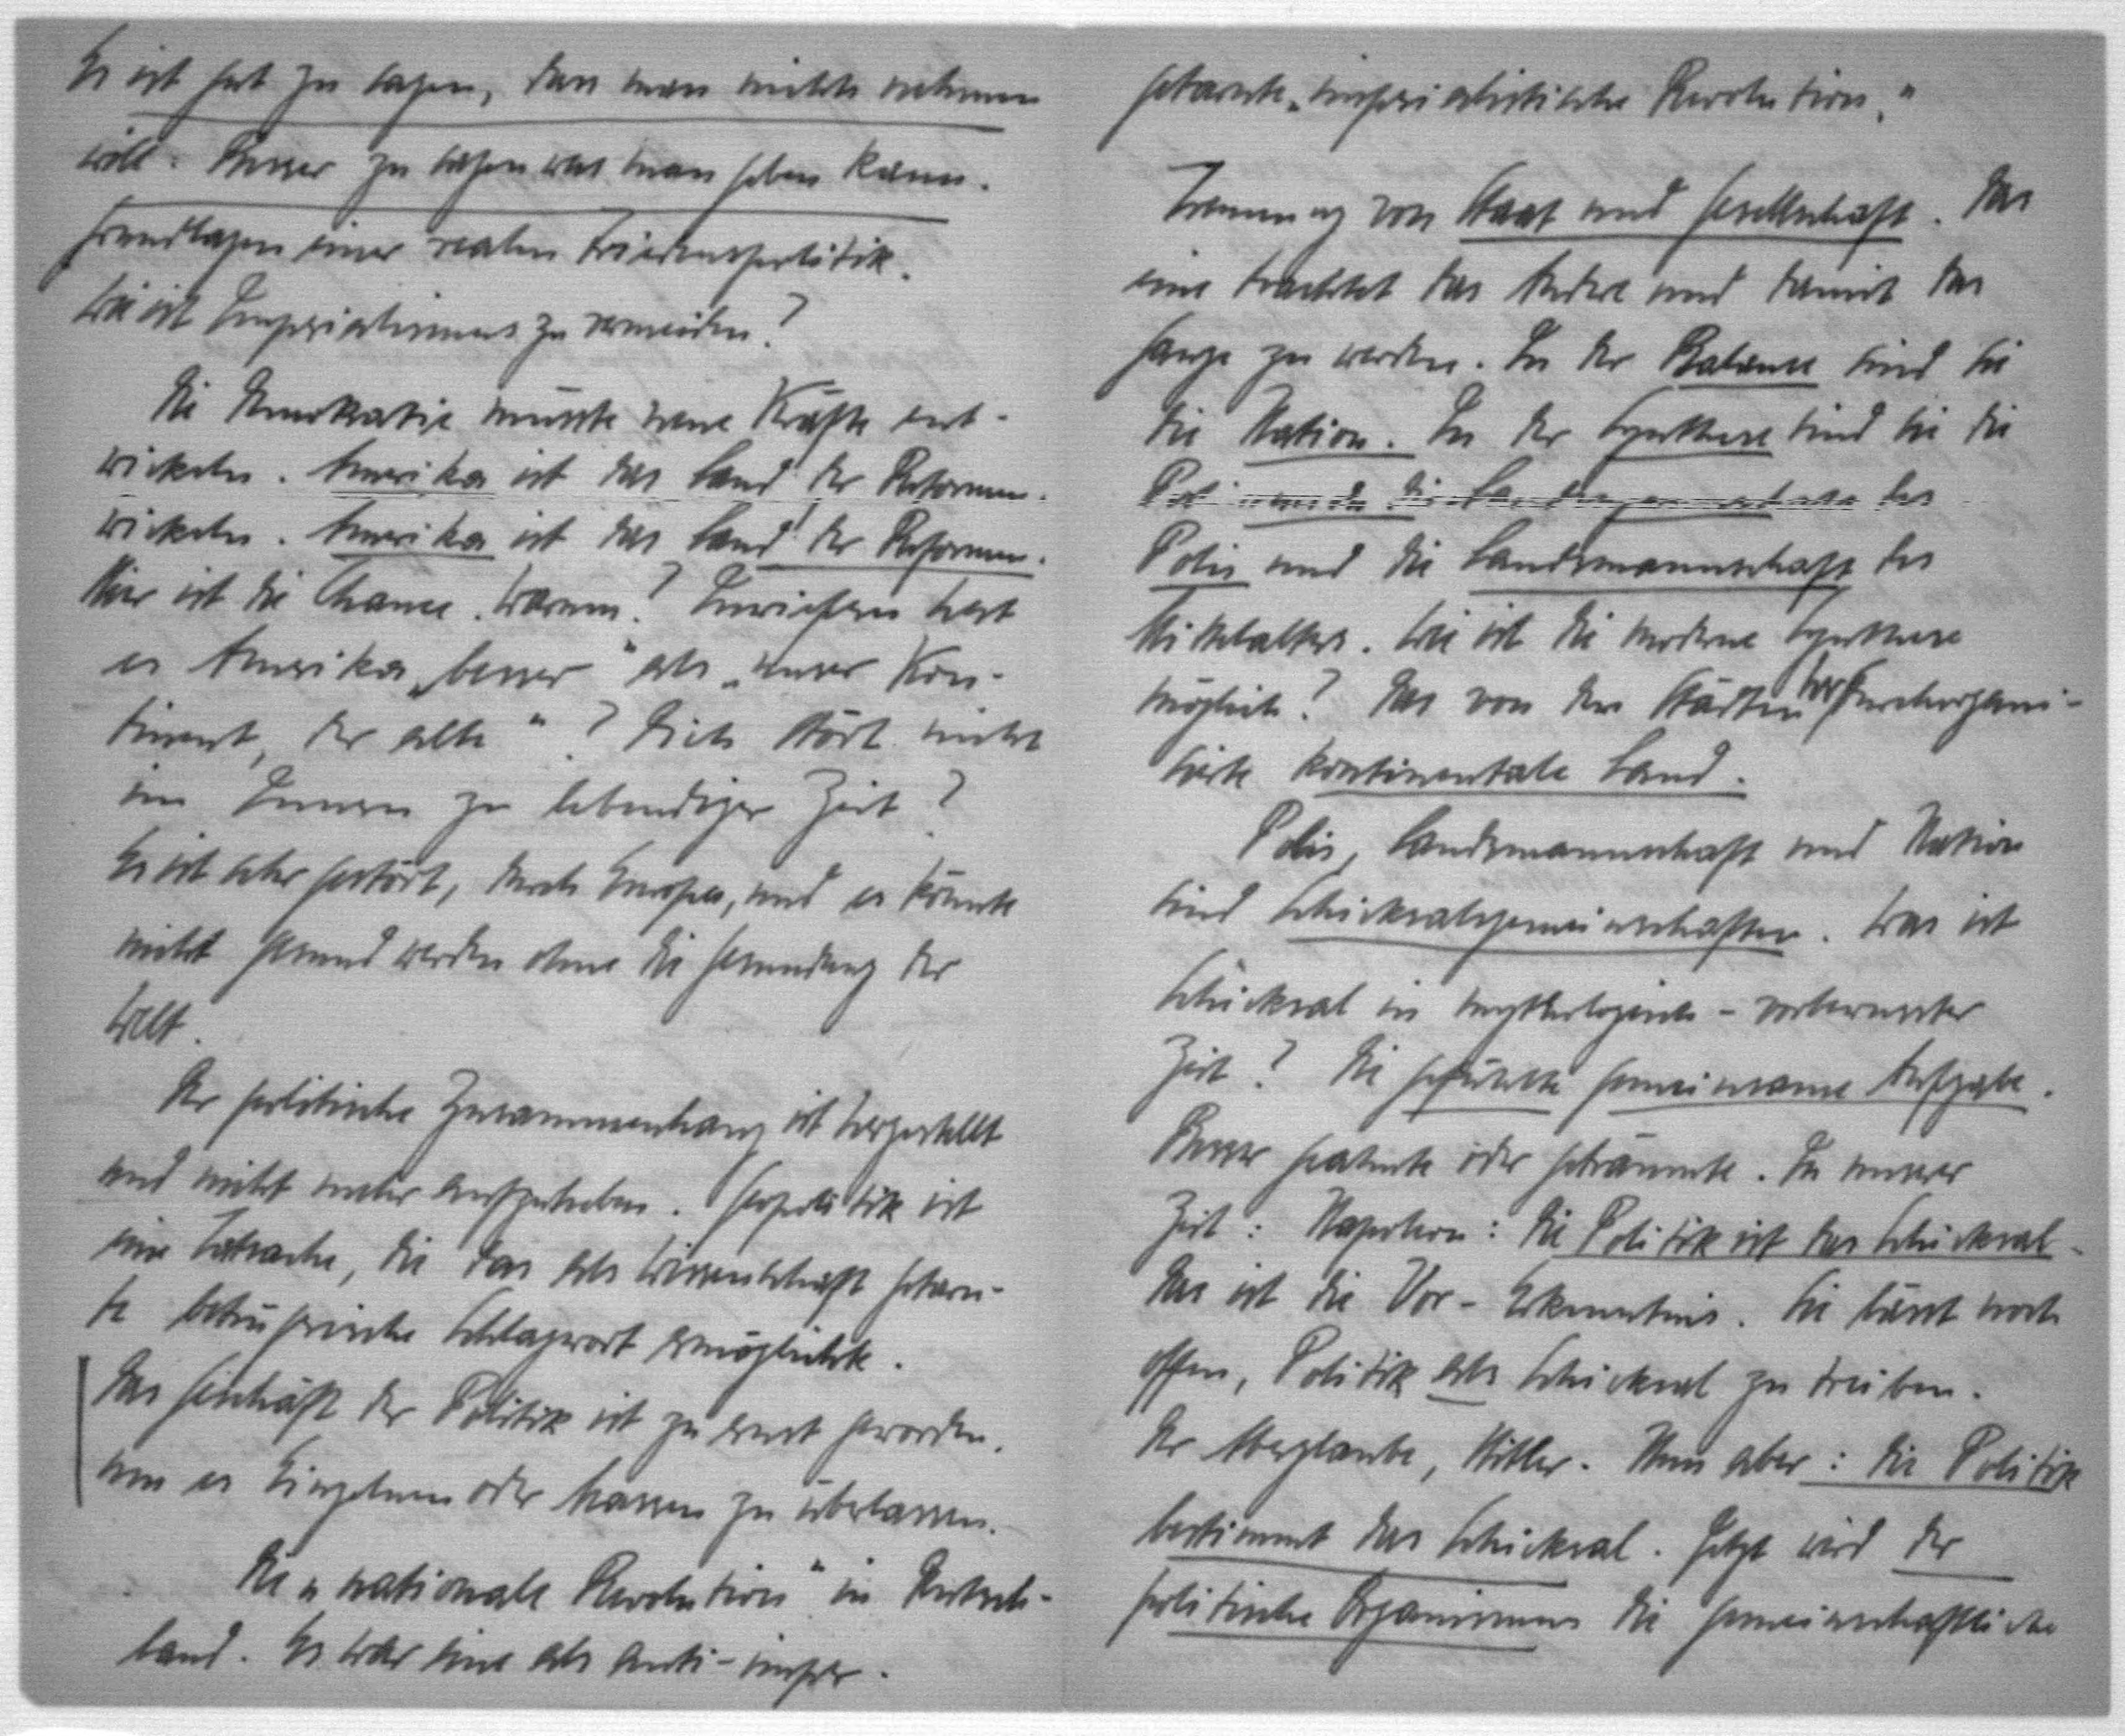 Es ist gut zu sagen, dass man nichts nehmen
will. Besser zu sagen was man geben kann.
Grundlagen einer realen Friedenspolitik.
Wie ist Imperialismus zu vermeiden?
Die Demokratie müsste neue Kräfte ent-
wickeln. Amerika ist das Land der Reformen.
wickeln. Amerika ist das Land der Reformen.
Hier ist die Chance. Warum? Inwiefern hat
es Amerika „besser" als „unser Kon-
tinent, der alte"? Dich stört nicht
im Innern zu lebendiger Zeit?
Es ist aber gestört, durch Europa, und es könnte
nicht gesund werden ohne die Gesundung der
Welt.
Der politische Zusammenhang ist hergestellt
und nicht mehr aufzuheben. Geopolitik ist
eine Tatsache, die das als Wissenschaft getarn-
te betrügerische Schlagwort ermöglichte.
Das Geschäft der Politik ist zu ernst geworden,
um es Einzelnen oder Massen zu überlassen.
Die „nationale Revolution" in Deutsch-
land. Es war eine als anti-imper.
getarnte „imperialistische Revolution."
Trennung von Staat und Gesellschaft. Das
eine trachtet das Andere und damit das
Ganze zu werden. In der Balance sind sie
die Nation. In der Synthese sind sie die
Polis und die Landsmannschaft des
Mittelalters. Wie ist die moderne Synthese
möglich? Das von den Städten her durchorgani-
sierte kontinentale Land.
Polis, Landsmannschaft und Nation
sind Schicksalsgemeinschaften. Was ist
Schicksal in mythologisch-vorbewusster
Zeit? Die gefühlte gemeinsame Aufgabe.
Besser geahnte oder geträumte. In unserer
Zeit: Napoleon: Die Politik ist das Schicksal.
Das ist die Vor-Erkenntnis. Sie lässt noch
offen, Politik als Schicksal zu treiben.
Der Aberglaube, Hitler. Nun aber: die Politik
bestimmt das Schicksal. Jetzt wird der
politische Organismus die gemeinschaftliche